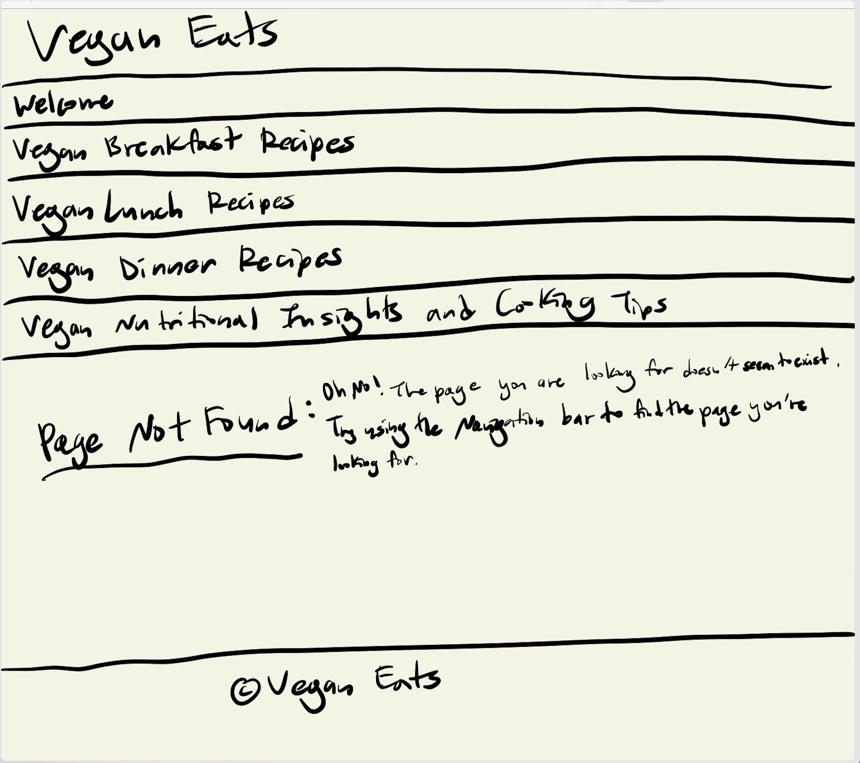 Vegan Eats
Welcome
Vegan Breakfast Recipes
Vegan Lunch Recipes
Vegan Dinner Recipes
Vegan Nutritional Insights and Cooking Tips
Page Not Found:
Oh No! The page you are looking for doesn't seem to exist.
Try using the Navigation bar to find the page you're
looking for.
© Vegan Eats